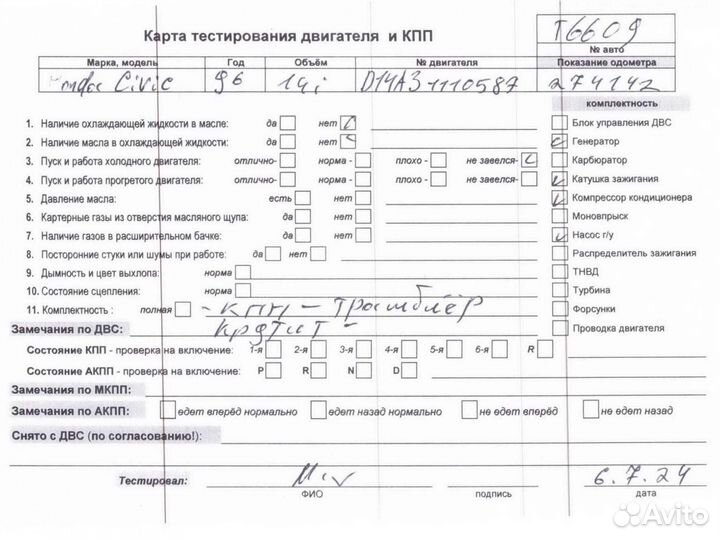 Карта тестирования двигателя и КПП T6609
№ авто
Марка, модель Год Объём № двигателя Показание одометра
Honda Civic 96 14i D14A3-1110587 274142
комплектность
1. Наличие охлаждающей жидкости в масле: да нет Блок управления ДВС
2. Наличие масла в охлаждающей жидкости: да нет Генератор
3. Пуск и работа холодного двигателя: отлично- норма - плохо - не завелся- Карбюратор
4. Пуск и работа прогретого двигателя: отлично- норма - плохо - не завелся- Катушка зажигания
5. Давление масла: есть нет Компрессор кондиционера
6. Картерные газы из отверстия масляного щупа: да нет Моновпрыск
7. Наличие газов в расширительном бачке: да нет Насос г/у
8. Посторонние стуки или шумы при работе: да нет Распределитель зажигания
9. Дымность и цвет выхлопа: норма ТНВД
10. Состояние сцепления: норма Турбина
11. Комплектность : полная - КПП - Трамблёр Форсунки
Замечания по ДВС: Проводка двигателя
Состояние КПП - проверка на включение: 1-я 2-я 3-я 4-я 5-я 6-я R
Состояние АКПП - проверка на включение: P R N D
Замечания по МКПП:
Замечания по АКПП: едет вперёд нормально едет назад нормально не едет вперёд не едет назад
Снято с ДВС (по согласованию!):
Тестировал: 6.7.24
ФИО подпись дата
Avito